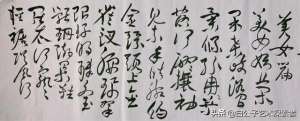 美女篇
美女妖且闲
采桑歧路间
柔条纷冉冉
落叶何翩翩攘袖
见素手皓腕约
金环头上金
爵钗腰佩翠
琅玕明珠交玉
体珊瑚间木难
罗衣何飘飘
轻裾随风还